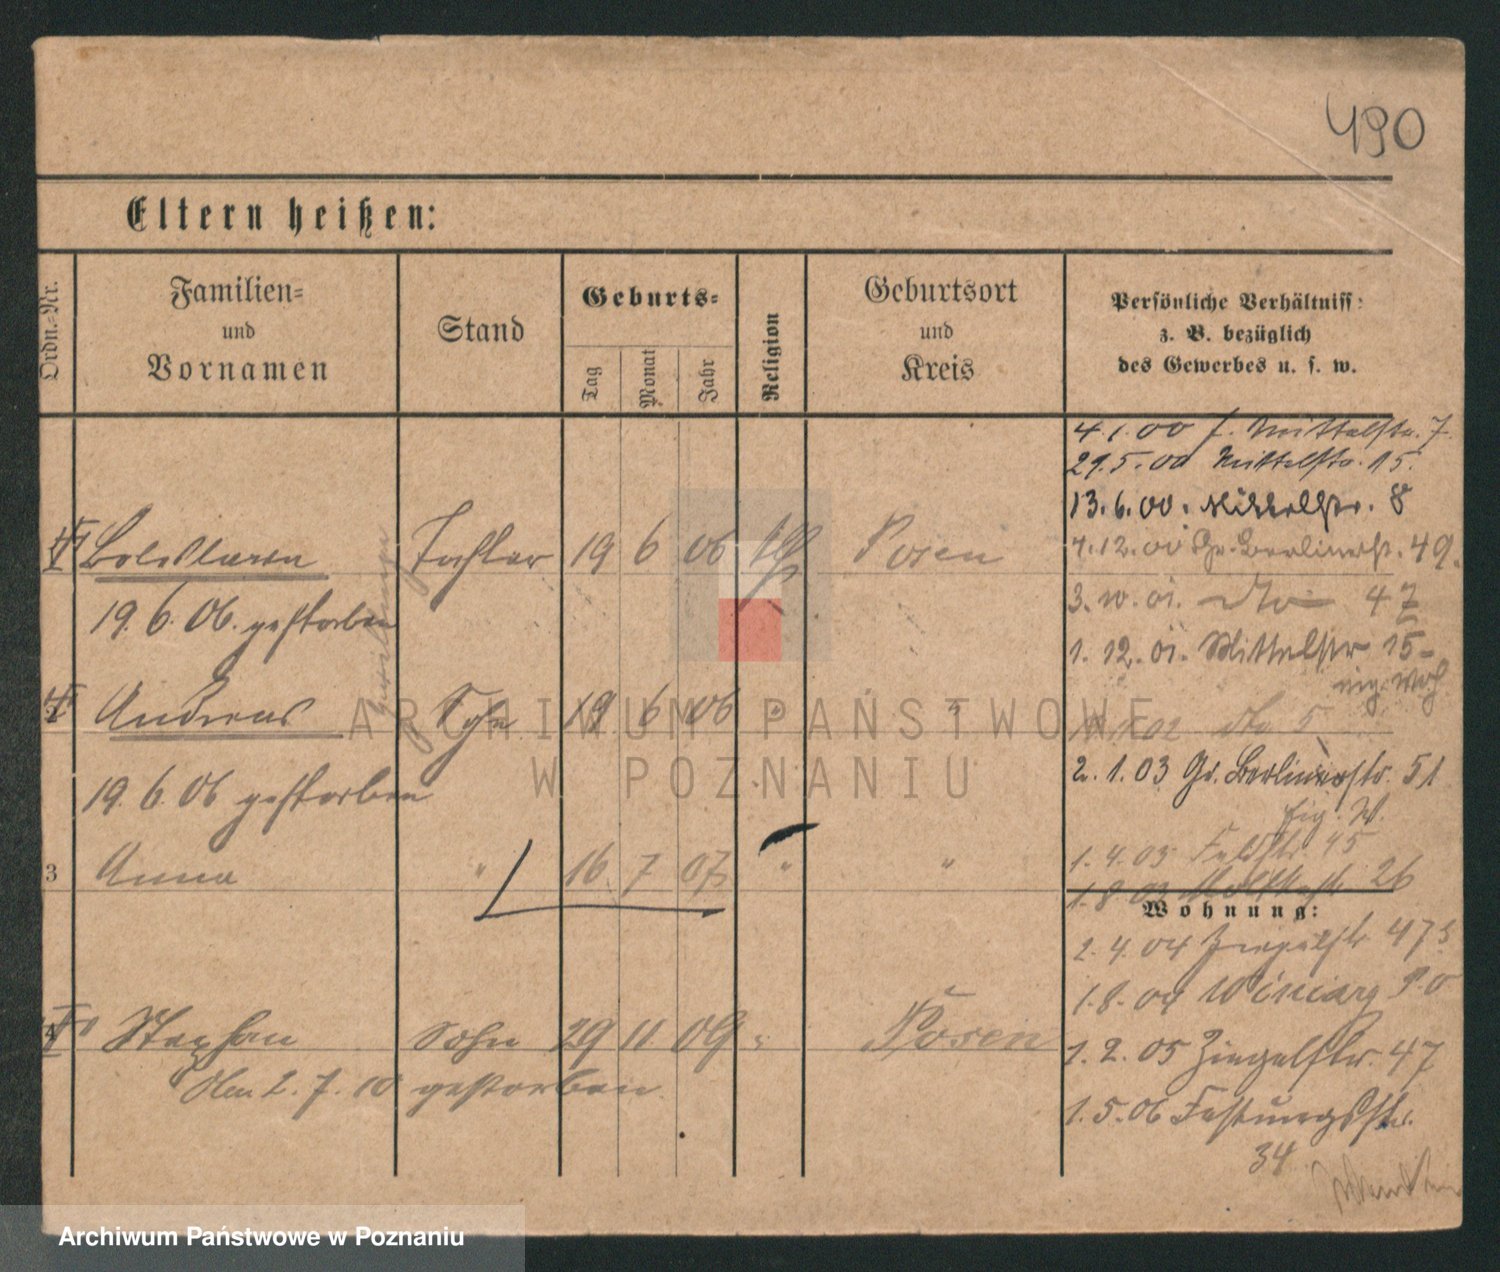 490
Eltern heißen:
Ordn.-Nr.
Familien-
und
Vornamen
Stand
Geburts-
Tag
Monat
Jahr
Religion
Geburtsort
und
Kreis
Persönliche Verhältniss
z. B. bezüglich
des Gewerbes u. s. w.
4.1.00 Mittelstr. 7.
29.5.00 Mittelstr. 15.
13.6.00. Mittelstr. 8
Boleslawa Tochter 19 6 06 Posen
4.12.00 Gr. Berlinerstr. 49.
19.6.06. gestorben
3.10.01. dto 47
1.12.01. Mittelstr 15
2 Andreas Sohn 19 6 06 " "
02 dto 5
19.6.06 gestorben
2.1.03 Gr. Berlinerstr. 51
Eig. W.
3 Anna " 16 7 07 " "
1.4.03 Feldstr. 45
1.8.03 26
Wohnung:
2.4.04 Ziegelstr. 47
1.8.04 Winiary
4 Stephan Sohn 29 11 09 " Posen
1.2.05 Ziegelstr. 47
2.7.10 gestorben
1.5.06 Festungsstr.
34
ARCHIWUM PAŃSTWOWE
W POZNANIU
Archiwum Państwowe w Poznaniu